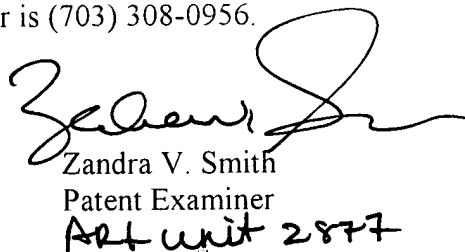 r is (703) 308-0956.
Zandra V. Smith
Patent Examiner
Art Unit 2877